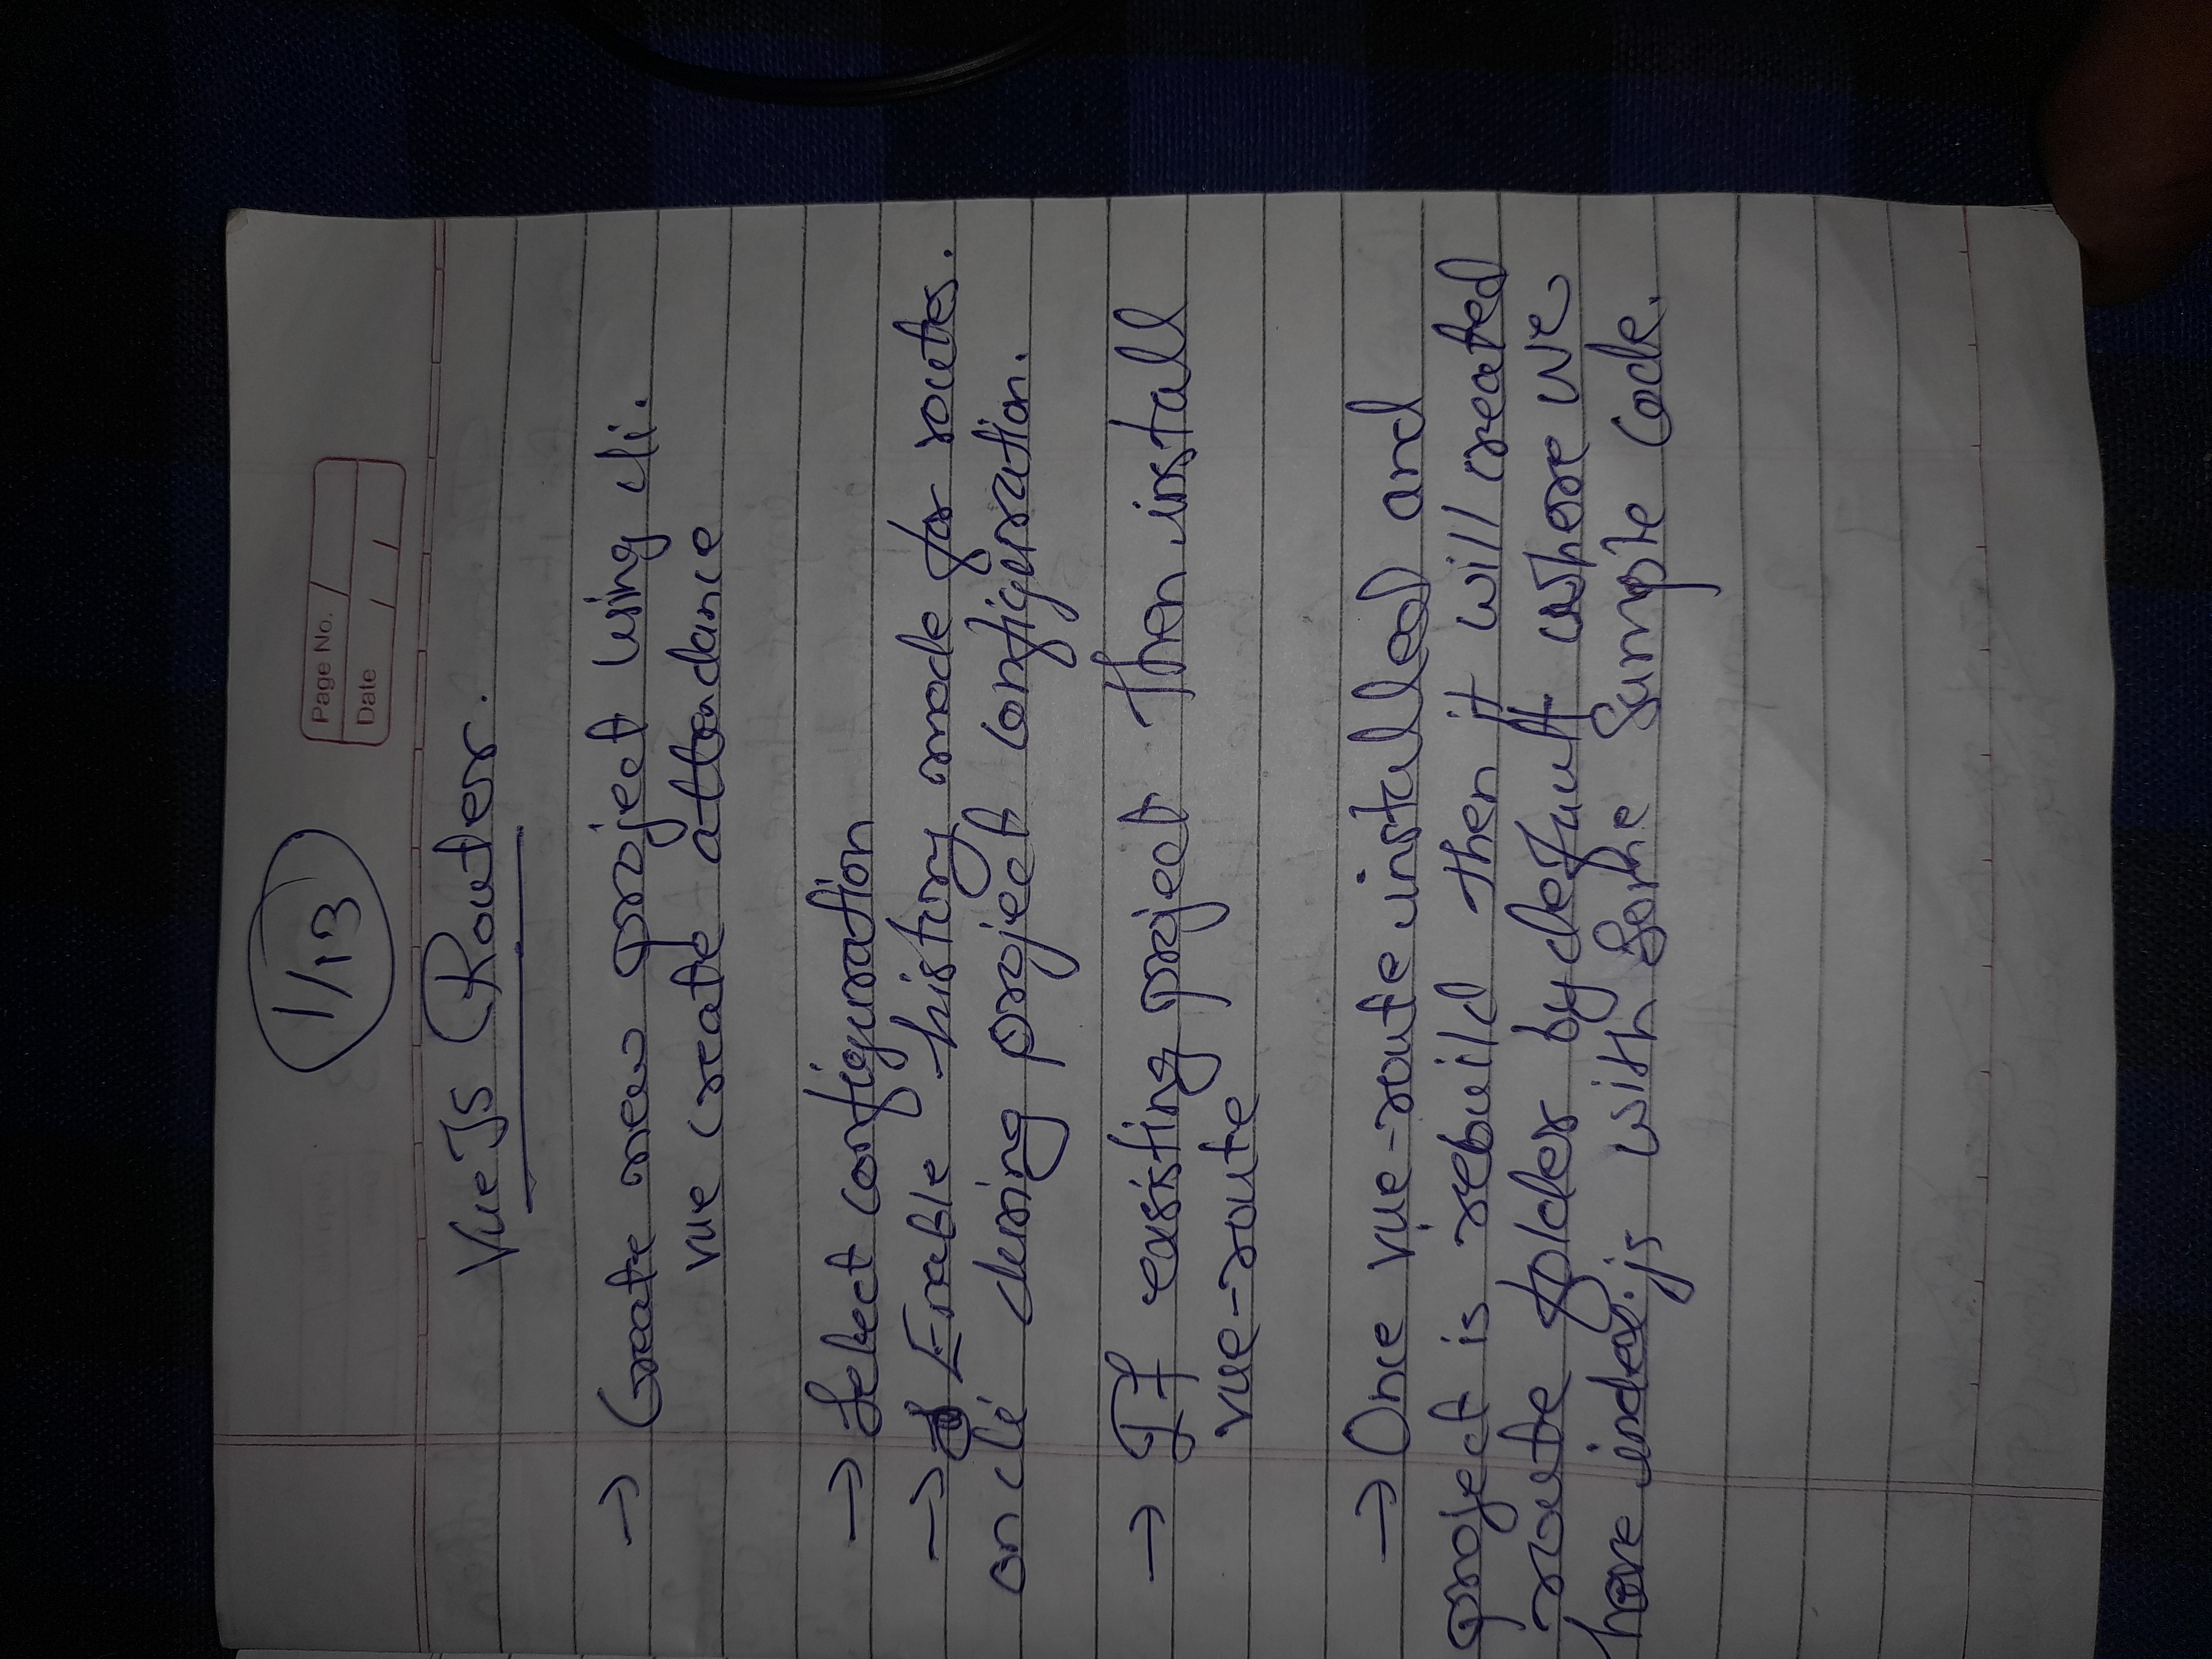 1/13
Page No.
Date
VueJS Router.
→ Create new project using cli.
vue create attendance
→ Select configuration
→ Enable history mode for routes.
on cli during project configuration.
→ If exsisting project then install
vue-route
→ Once vue-route installed and
project is rebuild then it will created
route folder by default where we
have index.js with some sample code.